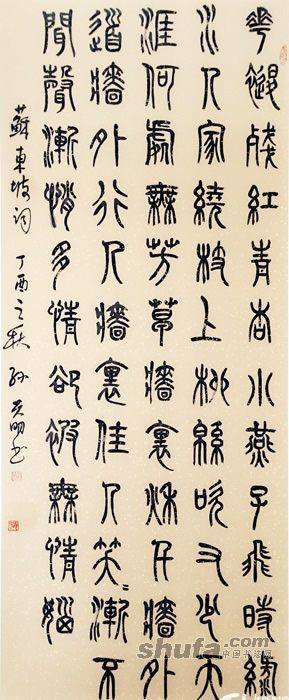 花褪殘紅青杏小燕子飛時綠
水人家繞枝上柳綿吹又少天
涯何處無芳草牆裏秋千牆外
道牆外行人牆裏佳人笑〻漸不
聞聲漸悄多情卻被無情惱
蘇東坡詞 丁酉之秋 孫 明书
shufa.com
中国书法网